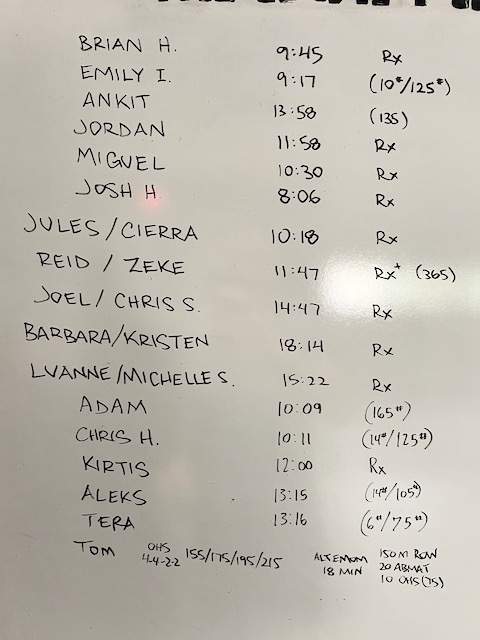 BRIAN H. 9:45 Rx
EMILY I. 9:17 (10#/125#)
ANKIT 13:58 (135)
JORDAN 11:58 Rx
MIGUEL 10:30 Rx
JOSH H 8:06 Rx
JULES / CIERRA 10:18 Rx
REID / ZEKE 11:47 Rx+ (365)
JOEL / CHRIS S. 14:47 Rx
BARBARA/KRISTEN 18:14 Rx
LVANNE/MICHELLE S. 15:22 Rx
ADAM 10:09 (165#)
CHRIS H. 10:11 (14#/125#)
KIRTIS 12:00 Rx
ALEKS 13:15 (14#/105#)
TERA 13:16 (6#/75#)
TOM OHS 4-4-2-2 155/175/195/215 ALT EMOM 18 MIN 150 M ROW
20 ABMAT
10 OHS (75)